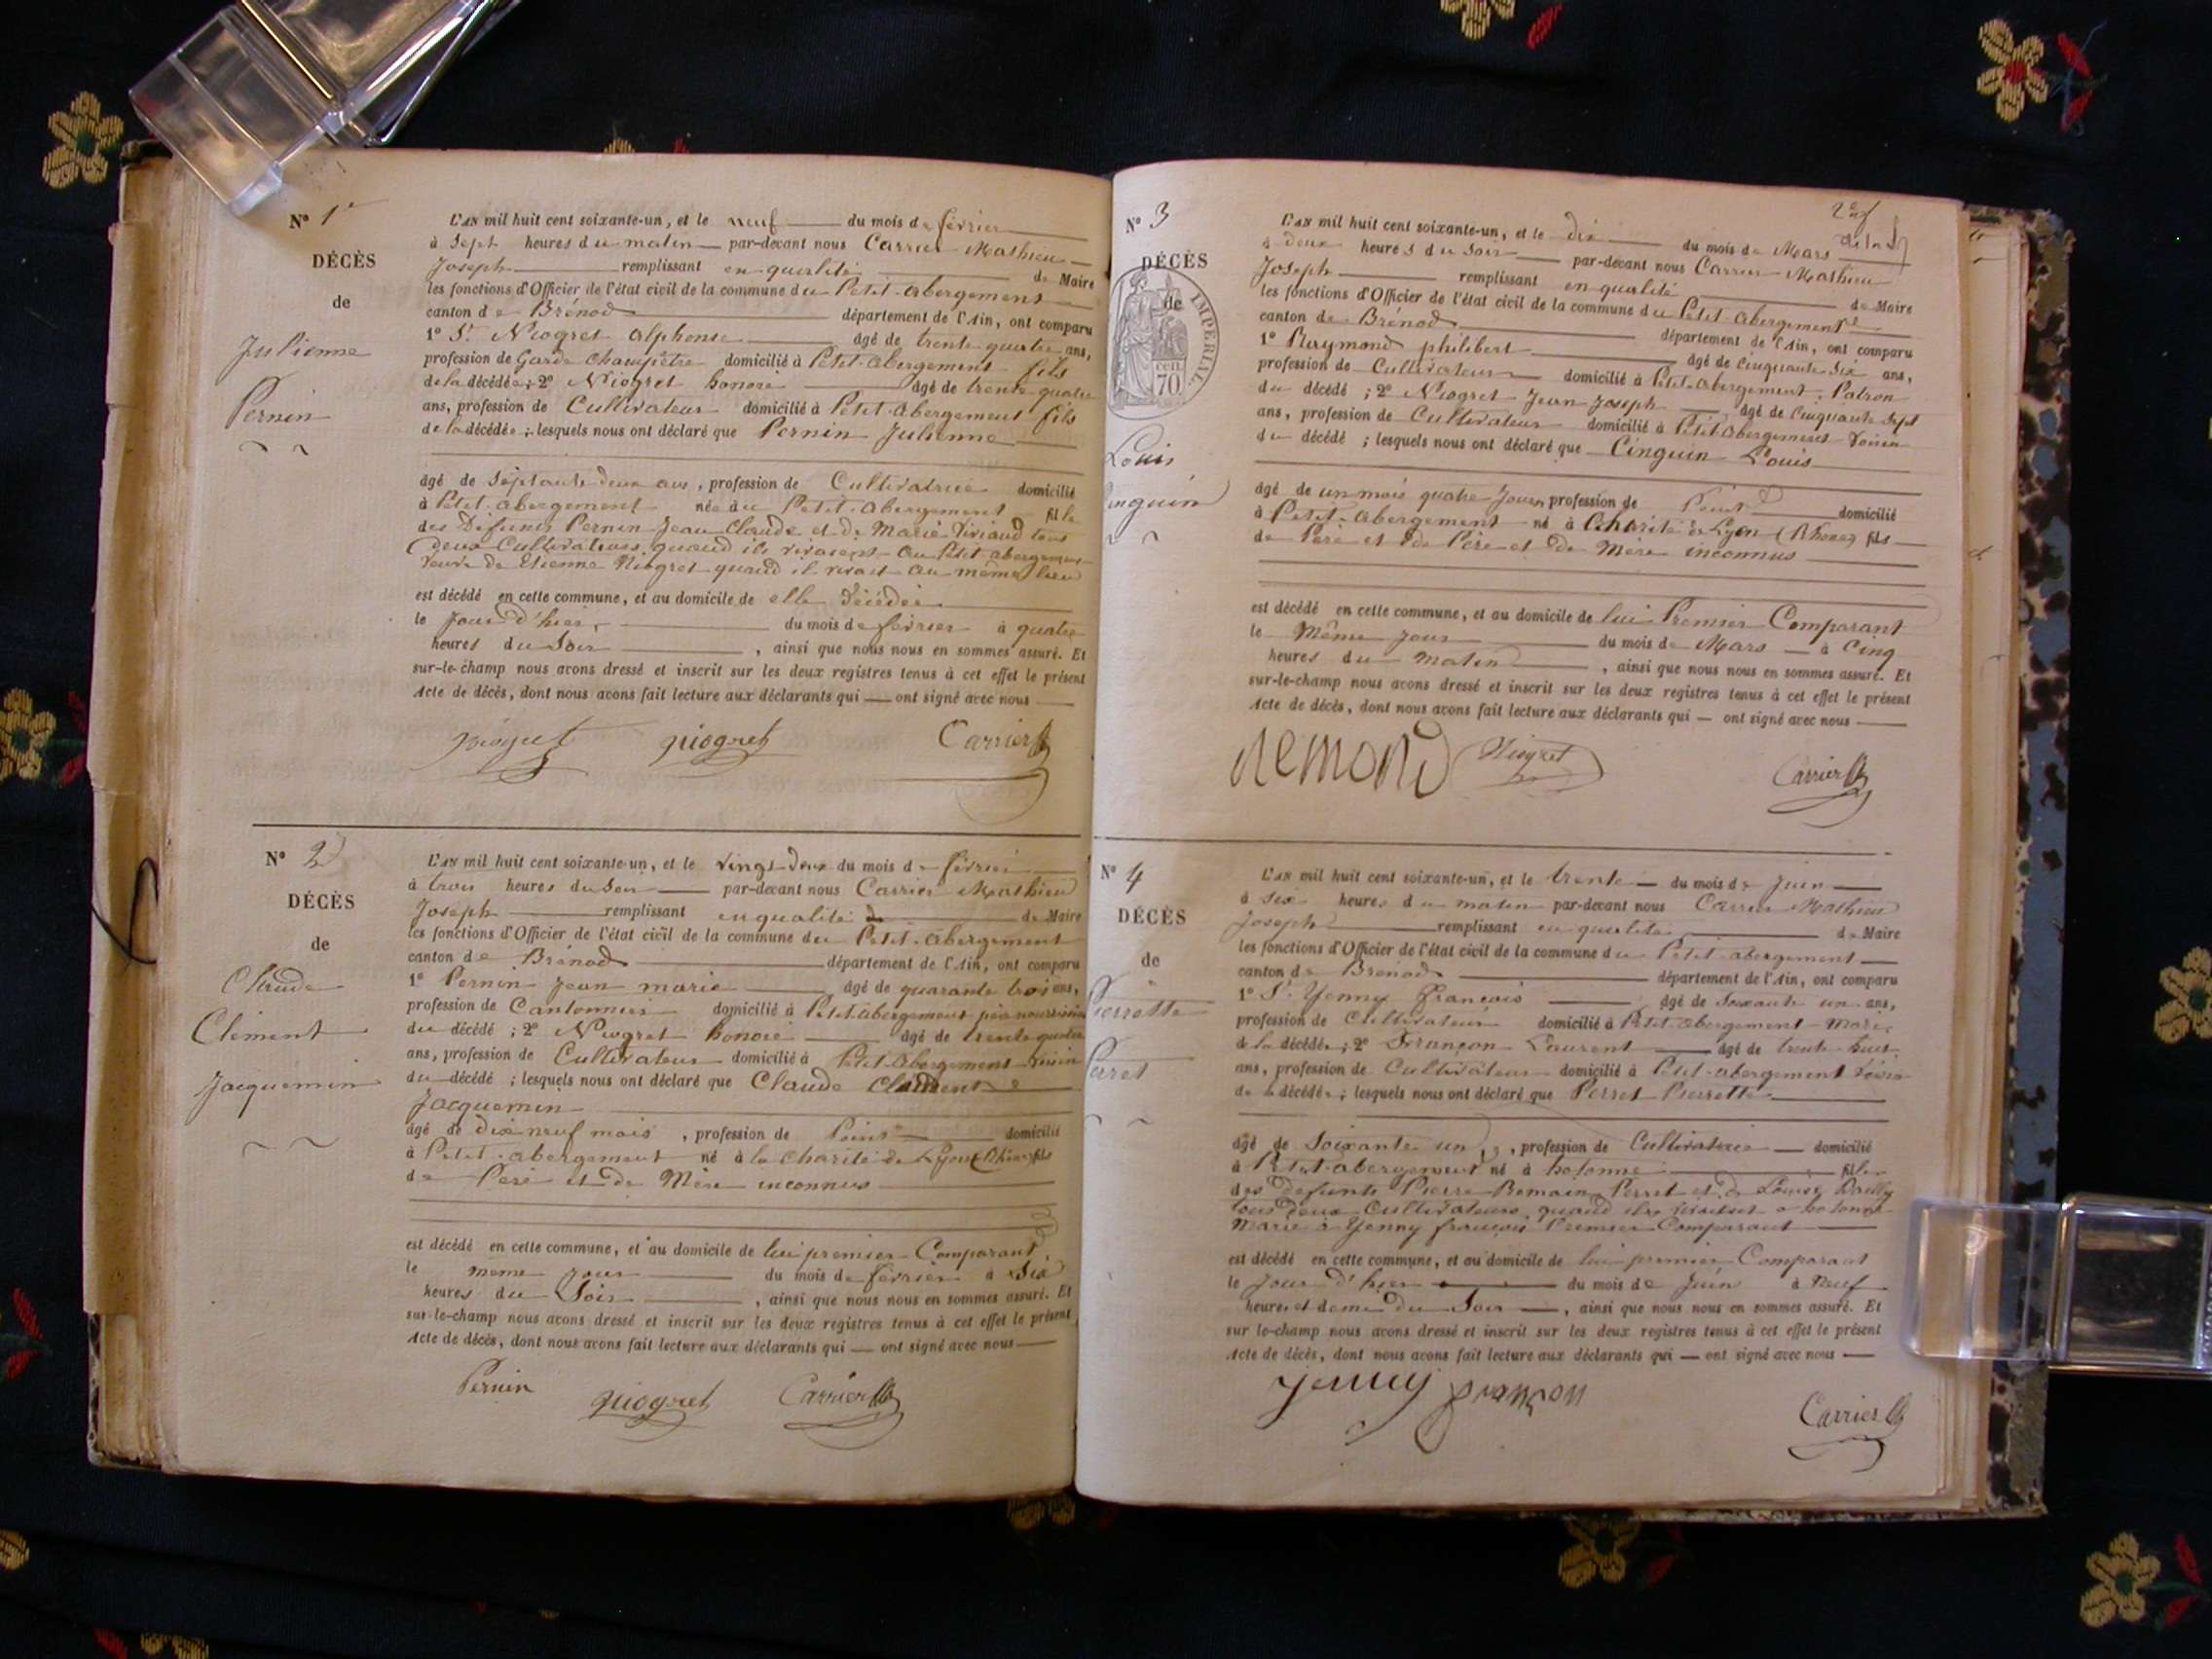 N° 1er
DÉCÈS
de
Julienne
Pernin
L'AN mil huit cent soixante-un, et le neuf du mois de février
à sept heures du matin par-devant nous Carrier Mathieu
Joseph remplissant en qualité de Maire
les fonctions d'Officier de l'état civil de la commune du Petit-abergement
canton de Brénod département de l'Ain, ont comparu
1° Sr Niogret alphonse âgé de trente quatre ans,
profession de Garde champêtre domicilié à Petit-abergement fils
de la décédée ; 2° Niogret honoré âgé de trente quatre
ans, profession de Cultivateur domicilié à Petit-abergement fils
de la décédée ; lesquels nous ont déclaré que Pernin Julienne
âgé de septante deux ans, profession de Cultivatrice domicilié
à Petit-abergement née au Petit-abergement fille
des Defunts Pernin Jean Claude et de Marie Viviand tous
deux Cultivateurs quand ils vivaient au Petit abergement
veuve de Etienne Niogret quand il vivait au même lieu
est décédé en cette commune, et au domicile de elle décédée
le jour d'hier du mois de février à quatre
heures du Soir, ainsi que nous nous en sommes assuré. Et
sur-le-champ nous avons dressé et inscrit sur les deux registres tenus à cet effet le présent
Acte de décès, dont nous avons fait lecture aux déclarants qui ont signé avec nous
Niogret niogret Carrier
N° 2
DÉCÈS
de
Claude
Clément
Jacquemin
L'AN mil huit cent soixante-un, et le vingt-deux du mois de février
à trois heures du Soir par-devant nous Carrier Mathieu
Joseph remplissant en qualité de Maire
les fonctions d'Officier de l'état civil de la commune du Petit-abergement
canton de Brénod département de l'Ain, ont comparu
1° Pernin Jean marie âgé de quarante trois ans,
profession de Cantonnier domicilié à Petit-abergement père nourricier
du décédé ; 2° Niogret honoré âgé de trente quatre
ans, profession de Cultivateur domicilié à Petit-abergement voisin
du décédé ; lesquels nous ont déclaré que Claude Clément
Jacquemin
âgé de dix neuf mois, profession de Point domicilié
à Petit-abergement né à la Charité de Lyon (Rhône) fils
de Père et de Mère inconnus
est décédé en cette commune, et au domicile de lui premier Comparant
le même jour du mois de février à Six
heures du Soir, ainsi que nous nous en sommes assuré. Et
sur-le-champ nous avons dressé et inscrit sur les deux registres tenus à cet effet le présent
Acte de décès, dont nous avons fait lecture aux déclarants qui ont signé avec nous
Pernin niogret Carrier
N° 3
DÉCÈS
de
IMPÉRIAL
cen.
70
Louis
Cinguin
L'AN mil huit cent soixante-un, et le dix du mois de Mars
à deux heures du Soir par-devant nous Carrier Mathieu
Joseph remplissant en qualité de Maire
les fonctions d'Officier de l'état civil de la commune du Petit-abergement
canton de Brénod département de l'Ain, ont comparu
1° Raymond philibert âgé de cinquante six ans,
profession de Cultivateur domicilié à Petit-abergement ; Patron
du décédé ; 2° Niogret Jean Joseph âgé de cinquante sept
ans, profession de Cultivateur domicilié à Petit-abergement voisin
du décédé ; lesquels nous ont déclaré que Cinguin Louis
âgé de un mois quatre jours profession de Point domicilié
à Petit-abergement né à Charité de Lyon (Rhône) fils
de Père et de Père et de Mère inconnus
est décédé en cette commune, et au domicile de lui Premier Comparant
le Même jour du mois de Mars à Cinq
heures du matin, ainsi que nous nous en sommes assuré. Et
sur-le-champ nous avons dressé et inscrit sur les deux registres tenus à cet effet le présent
Acte de décès, dont nous avons fait lecture aux déclarants qui ont signé avec nous
remond Niogret Carrier
N° 4
DÉCÈS
de
Pierrette
Perret
L'AN mil huit cent soixante-un, et le trente du mois de Juin
à six heures du matin par-devant nous Carrier Mathieu
Joseph remplissant en qualité de Maire
les fonctions d'Officier de l'état civil de la commune du Petit-abergement
canton de Brénod département de l'Ain, ont comparu
1° Sr Yenny françois âgé de Soixante un ans,
profession de Cultivateur domicilié à Petit-abergement Mari
de la décédée ; 2° Françon Laurent âgé de trente huit
ans, profession de Cultivateur domicilié à Petit-abergement voisin
de la décédée ; lesquels nous ont déclaré que Perret Pierrette
âgé de Soixante un, profession de Cultivatrice domicilié
à Petit-abergement né à hotonne fille
des defunts Pierre Romain Perret et de Louise Bailly
tous deux Cultivateurs quand ils vivaient a hotonne
Marié à Yenny françois Premier Comparant
est décédé en cette commune, et au domicile de lui premier Comparant
le jour d'hier du mois de Juin à neuf
heures et demi du Soir, ainsi que nous nous en sommes assuré. Et
sur le-champ nous avons dressé et inscrit sur les deux registres tenus à cet effet le présent
Acte de décès, dont nous avons fait lecture aux déclarants qui ont signé avec nous
Jenny françon
Carrier